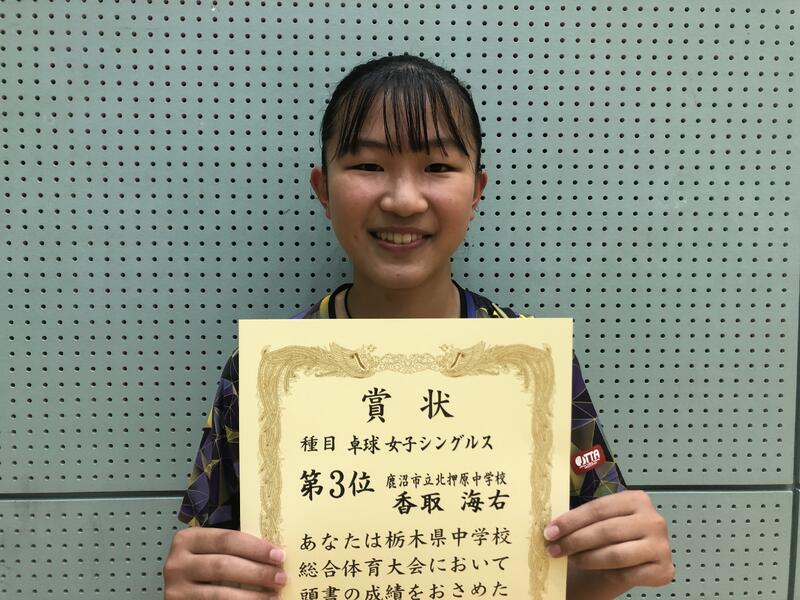 賞状
種目 卓球 女子シングルス
第3位 鹿沼市立北押原中学校
香取 海右
あなたは栃木県中学校
総合体育大会において
頭書の成績をおさめた
TTA